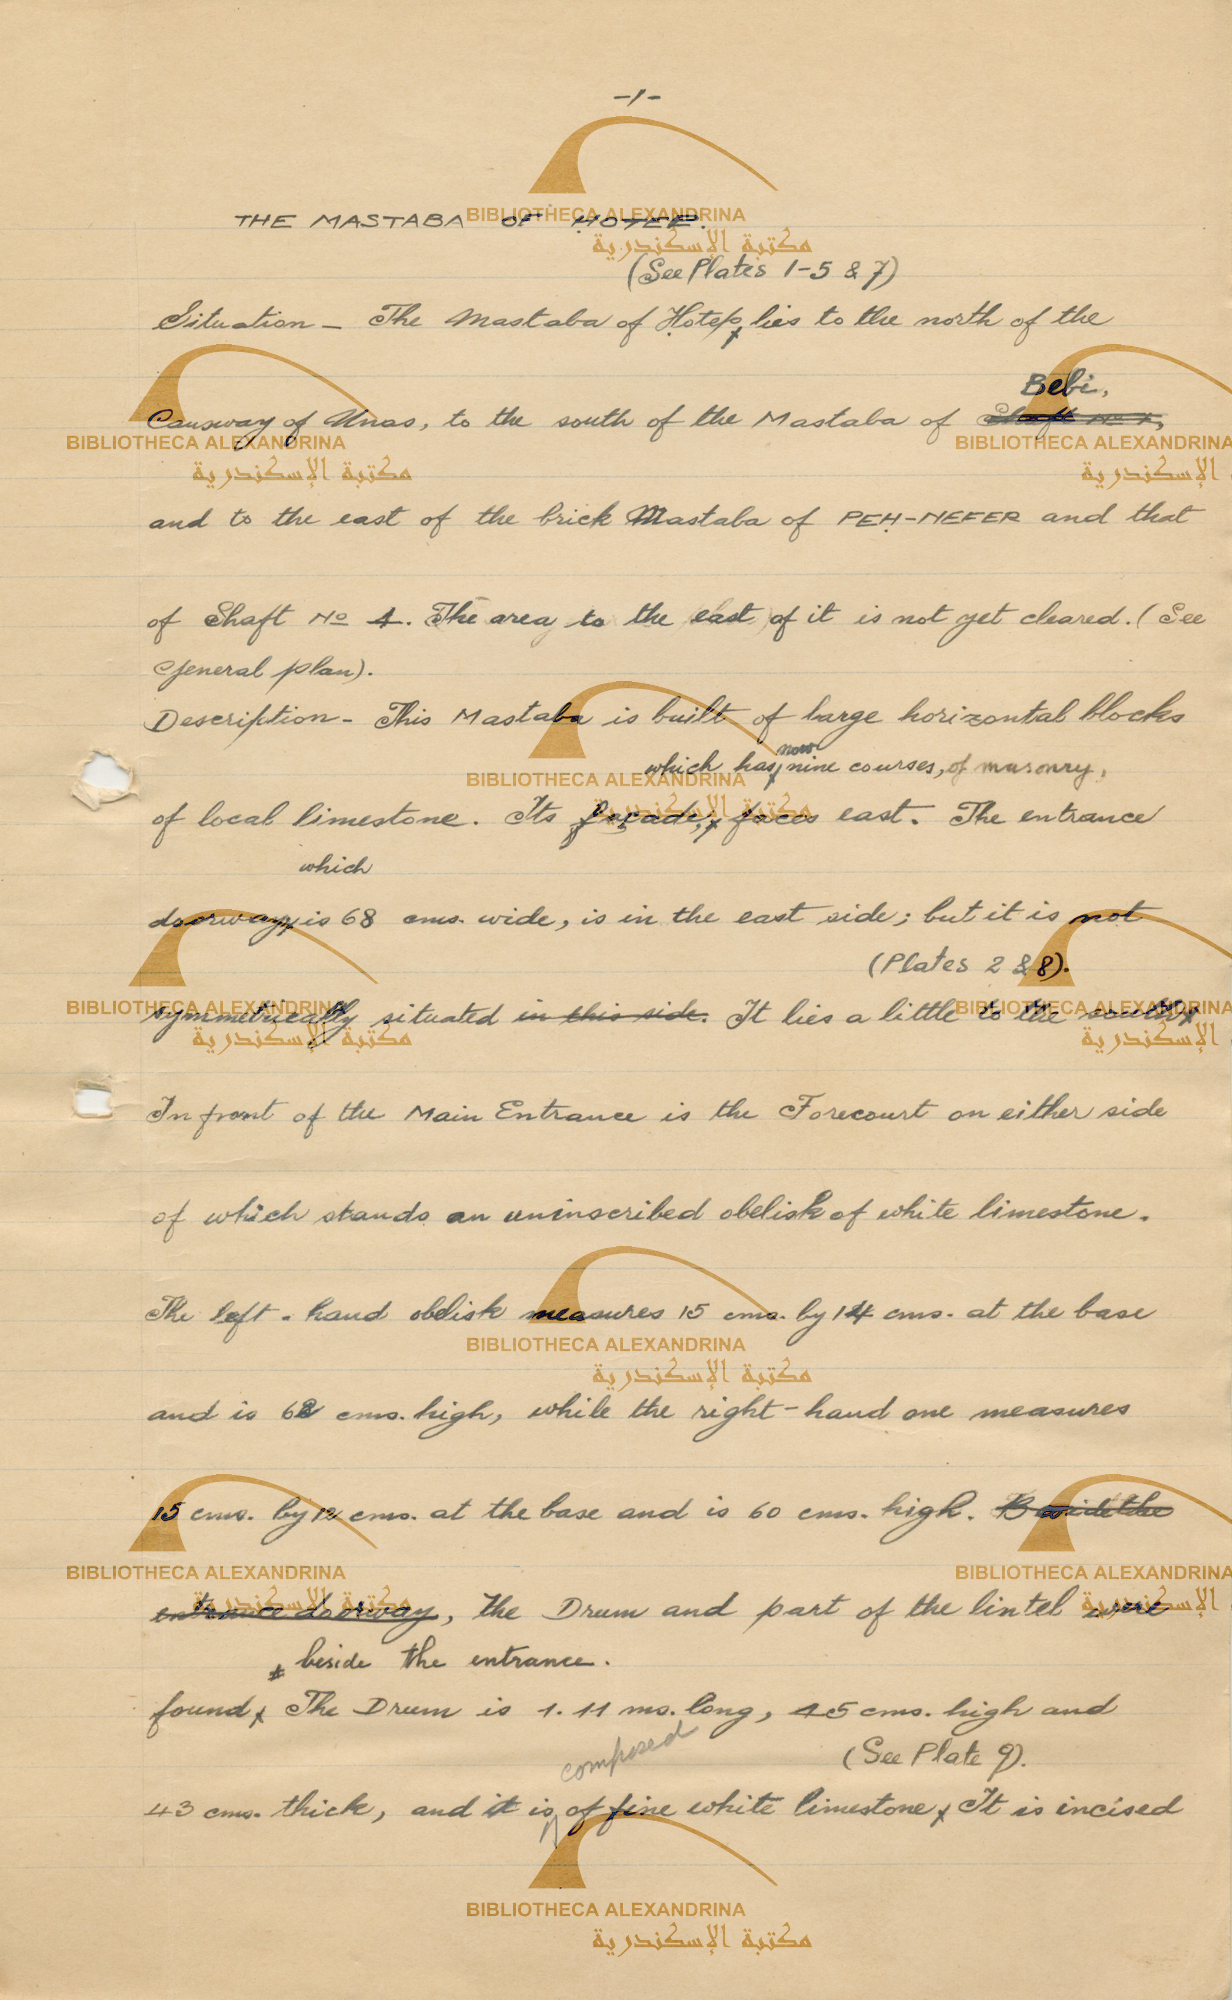 -1-
THE MASTABA OF HOTEP.
(See Plates 1-5 & 7)
Situation - The Mastaba of Hotep, lies to the north of the
Bebi,
Causway of Unas, to the south of the Mastaba of Shaft No 1,
and to the east of the brick Mastaba of PEH-NEFER and that
of Shaft No 4. The area to the east of it is not yet cleared. (See
General plan).
Description - This Mastaba is built of large horizontal blocks
now
which has nine courses, of masonry,
of local limestone. Its façade, faces east. The entrance
which
doorway, is 68 cms. wide, is in the east side; but it is not
(Plates 2 & 8).
symmetrically situated in this side. It lies a little to the south
In front of the Main Entrance is the Forecourt on either side
of which stands an uninscribed obelisk of white limestone.
The left-hand obelisk measures 15 cms. by 14 cms. at the base
and is 62 cms. high, while the right-hand one measures
15 cms. by 12 cms. at the base and is 60 cms. high. Beside the
entrance doorway, the Drum and part of the lintel were
beside the entrance.
found The Drum is 1.11 ms. long, 45 cms. high and
composed
(See Plate 9).
43 cms. thick, and it is of fine white limestone It is incised
BIBLIOTHECA ALEXANDRINA
مكتبة الإسكندرية